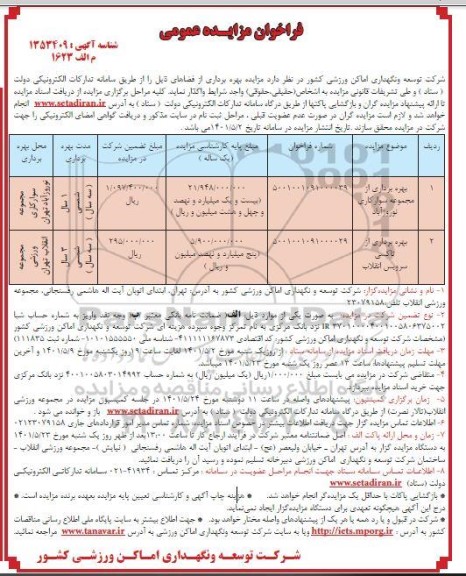 فراخوان مزایده عمومی
شناسه آگهی : 1353409
م الف 1623
شرکت توسعه ونگهداری اماکن ورزشی کشور در نظر دارد مزایده بهره برداری از فضاهای ذیل را از طریق سامانه تدارکات الکترونیکی دولت
( ستاد ) و طی تشریفات قانونی مزایده به اشخاص(حقیقی،حقوقی) واجد شرایط واگذار نماید. کلیه مراحل برگزاری مزایده از دریافت اسناد مزایده
تا ارائه پیشنهاد مزایده گران و بازگشایی پاکتها از طریق درگاه سامانه تدارکات الکترونیکی دولت ( ستاد ) به آدرس www.setadiran.ir انجام
خواهد شد و لازم است مزایده گران در صورت عدم عضویت قبلی ، مراحل ثبت نام در سایت مذکور و دریافت گواهی امضای الکترونیکی را جهت
شرکت در مزایده محقق سازند .تاریخ انتشار مزایده در سامانه تاریخ 1401/5/2می باشد .
ردیف موضوع مزایده شماره فراخوان مبلغ پایه کارشناسی مزایده ( یک ساله ) مبلغ تضمین شرکت در مزایده مدت بهره برداری محل بهره برداری
1 بهره برداری از مجموعه سوارکاری نوروزآباد 21/948/000/000 (بیست و یک میلیارد و نهصد و چهل و هشت میلیون و ریال) 1/097/400/000 ریال 1 سال شمسی ( سه سال ) مجموعه سوارکاری نوروزآباد تهران
2 بهره برداری از تاکسی سرویس انقلاب 5/900/000/000 (پنج میلیارد و نهصد میلیون و ریال ) 295/000/000 ریال 3 سال شمسی ( سه سال ) مجموعه ورزشی انقلاب تهران
1- نام و نشانی مزایده گزار: شرکت توسعه و نگهداری اماکن ورزشی کشور به آدرس: تهران، ابتدای اتوبان آیت اله هاشمی رفسنجانی، مجموعه
ورزشی انقلاب تلفن:23079158
2- نوع تضمین شرکت در مزایده: به صورت یکی از موارد ذیل : الف) ضمانت نامه بانکی معتبر ب) وجه نقد واریز به شماره حساب شبا
نزد بانک مرکزی به نام تمرکز وجوه سپرده مزینه ای شرکت توسعه و نگهداری اماکن ورزشی کشور
(مشخصات شرکت توسعه و نگهداری اماکن ورزشی کشور: کد اقتصادی -شناسه ملی: -شماره ثبت 111835)
3- مهلت زمان دریافت اسناد مزایده از سامانه ستاد : از روز یک شنبه مورخ 1401/5/2 لغایت ساعت 19 روز یکشنبه مورخ 1401/5/9 و آخرین
مهلت تسلیم پیشنهادها، ساعت 13 عصر روز یک شنبه مورخ 1401/5/23 میباشد.
4- متقاضی شرکت در مزایده می بایست مبلغ 1/000/000ریال (یک میلیون ریال) به شماره حساب نزد بانک مرکزی
جهت خرید اسناد مزایده بپردازد.
5- زمان برگزاری کمیسیون: پیشنهادهای واصله در ساعت 11 دوشنبه مورخ 1401/5/24 در جلسه کمیسیون مزایده در مجموعه ورزشی
انقلاب(تالار نصرت) از طریق درگاه سامانه تدارکات الکترونیکی دولت ( ستاد) به آدرس www.setadiran.ir باز و خوانده می شود .
6- اطلاعات تماس مزایده گزار جهت دریافت اطلاعات بیشتر در خصوص اسناد مزایده شماره تماس مدیر امور قراردادهای جاری 02123079158
7- زمان و محل ارائه پاکت الف : اصل ضمانتنامه معتبر شرکت در فرآیند ارجاع کار تا ساعت 13:00بعد از ظهر روز یک شنبه مورخ 1401/5/23
به دستگاه مزایده گزار به آدرس تهران – خیابان ولیعصر (عج) – ابتدای اتوبان آیت اله هاشمی رفسنجانی ( نیایش )– مجموعه ورزشی انقلاب –
ساختمان شرکت توسعه و نگهداری اماکن ورزشی دبیرخانه تسلیم نموده و رسید آن را دریافت نمایید.
8- اطلاعات تماس سامانه ستاد جهت انجام مراحل عضویت در سامانه : مرکز تماس : 41934-021 سامانه تدارکاتی الکترونیکی
دولت (ستاد) www.setadiran.ir
* بازگشایی پاکات با حداقل یک مزایده گر انجام خواهد شد. * هزینه چاپ آگهی و کارشناسی تعیین پایه مزایده بعهده برنده مزایده است. *
درج این آگهی هیچگونه تعهدی برای دستگاه مزایده گزار ایجاد نمی نماید.
* شرکت در قبول و یا رد همه یا هر یک از پیشنهادهای واصله مختار خواهد بود. * جهت اطلاع بیشتر به سایت پایگاه ملی اطلاع رسانی مناقصات
کشور به آدرس: http://iets.mporg.ir ویا به سایت شرکت توسعه ونگهداری اماکن ورزشی به آدرس www.tanavar.ir مراجعه نمائید.
شرکت توسعه ونگهداری اماکن ورزشی کشور